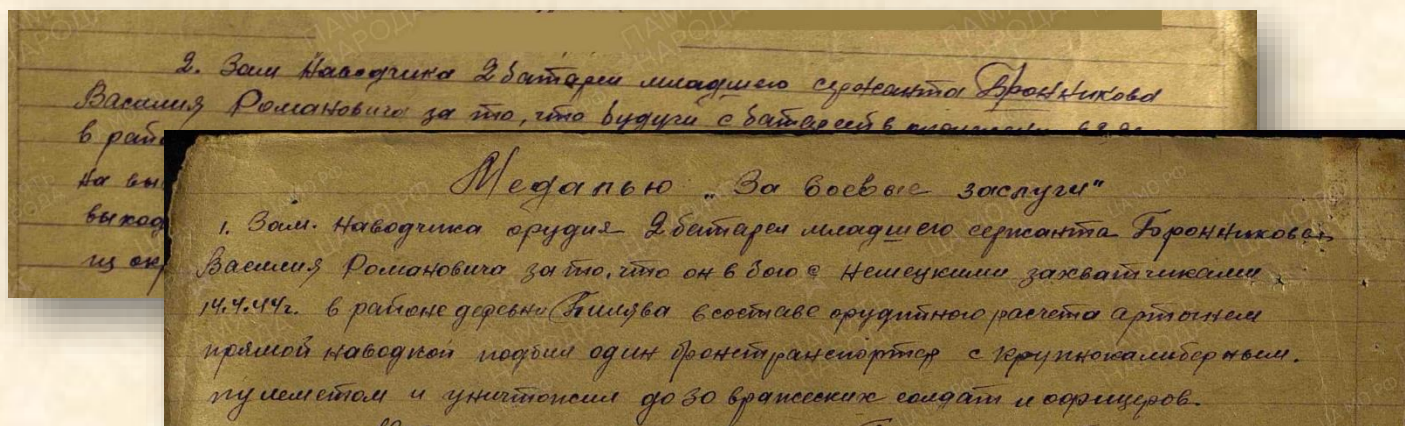 2. Зам Наводчика 2 батареи младшего сержанта Бронникова
Василия Романовича за то, что будучи с батареей в
в рай
на вы
выход
из ок
Медалью „За боевые заслуги"
1. Зам. Наводчика орудия 2 батареи младшего сержанта Бронникова
Василия Романовича за то, что он в бою с немецкими захватчиками
14.4.44г. в районе деревни Билява в составе орудийного расчета артогнем
прямой наводкой подбил один бронетранспортер с крупнокалиберным.
пулеметом и уничтожил до 30 вражеских солдат и офицеров.